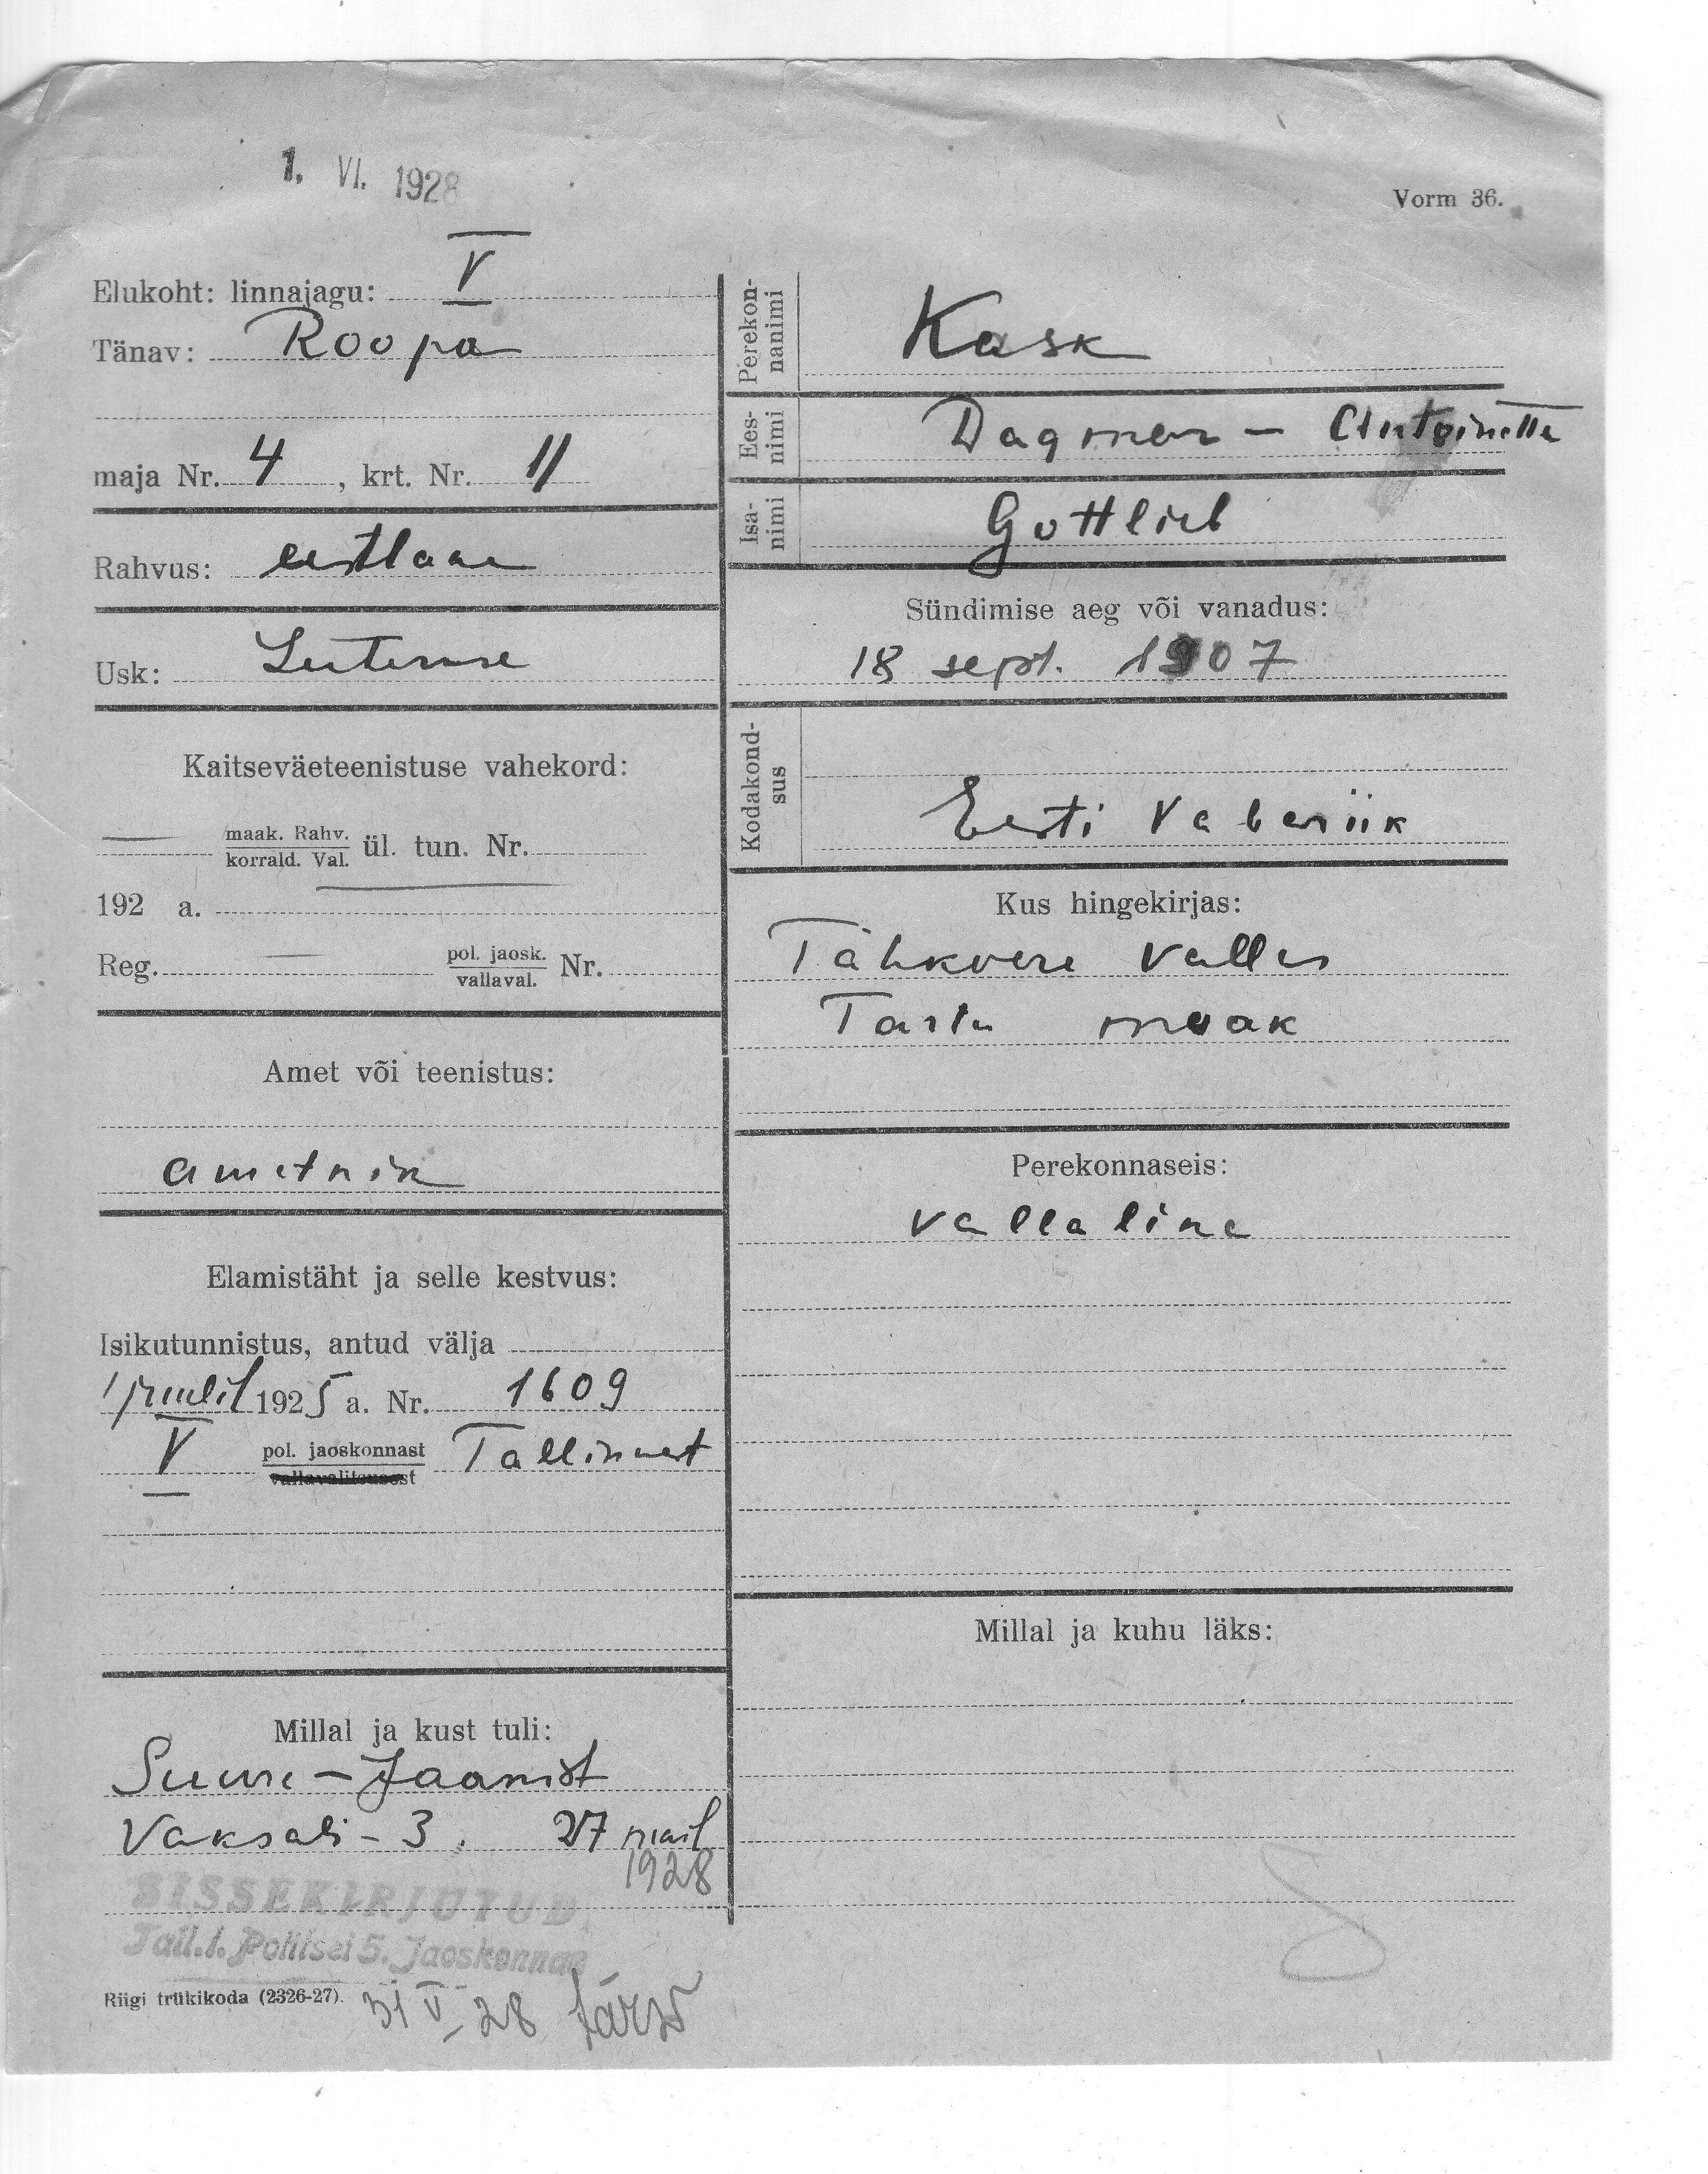 1. VI. 1928
Vorm 36.
Elukoht: linnajagu: V
Tänav: Roopa
maja Nr. 4, krt. Nr. 11
Rahvus: eestlane
Usk: Luteruse
Kaitseväeteenistuse vahekord:
— maak. Rahv. / korrald. Val. ül. tun. Nr.
192 a. —
Reg. — pol. jaosk. / vallaval. Nr.
Amet või teenistus:
ametnik
Elamistäht ja selle kestvus:
Isikutunnistus, antud välja
1 juulil 1925 a. Nr. 1609
V pol. jaoskonnast / vallavalitsusest Tallinnast
Millal ja kust tuli:
Suure-Jaanist
Vaksali-3. 27 mail
1928
SISSEKIRJUTUD
Tall.l. Politsei 5. Jaoskonnas
Riigi trükikoda (2326-27).
31 V 28
Perekonnanimi
Kask
Eesnimi
Dagmar - Antoinette
Isanimi
Gottlieb
Sündimise aeg või vanadus:
18 sept. 1907
Kodakondsus
Eesti Vabariik
Kus hingekirjas:
Tähkvere vallas
Tartu maak
Perekonnaseis:
vallaline
Millal ja kuhu läks: